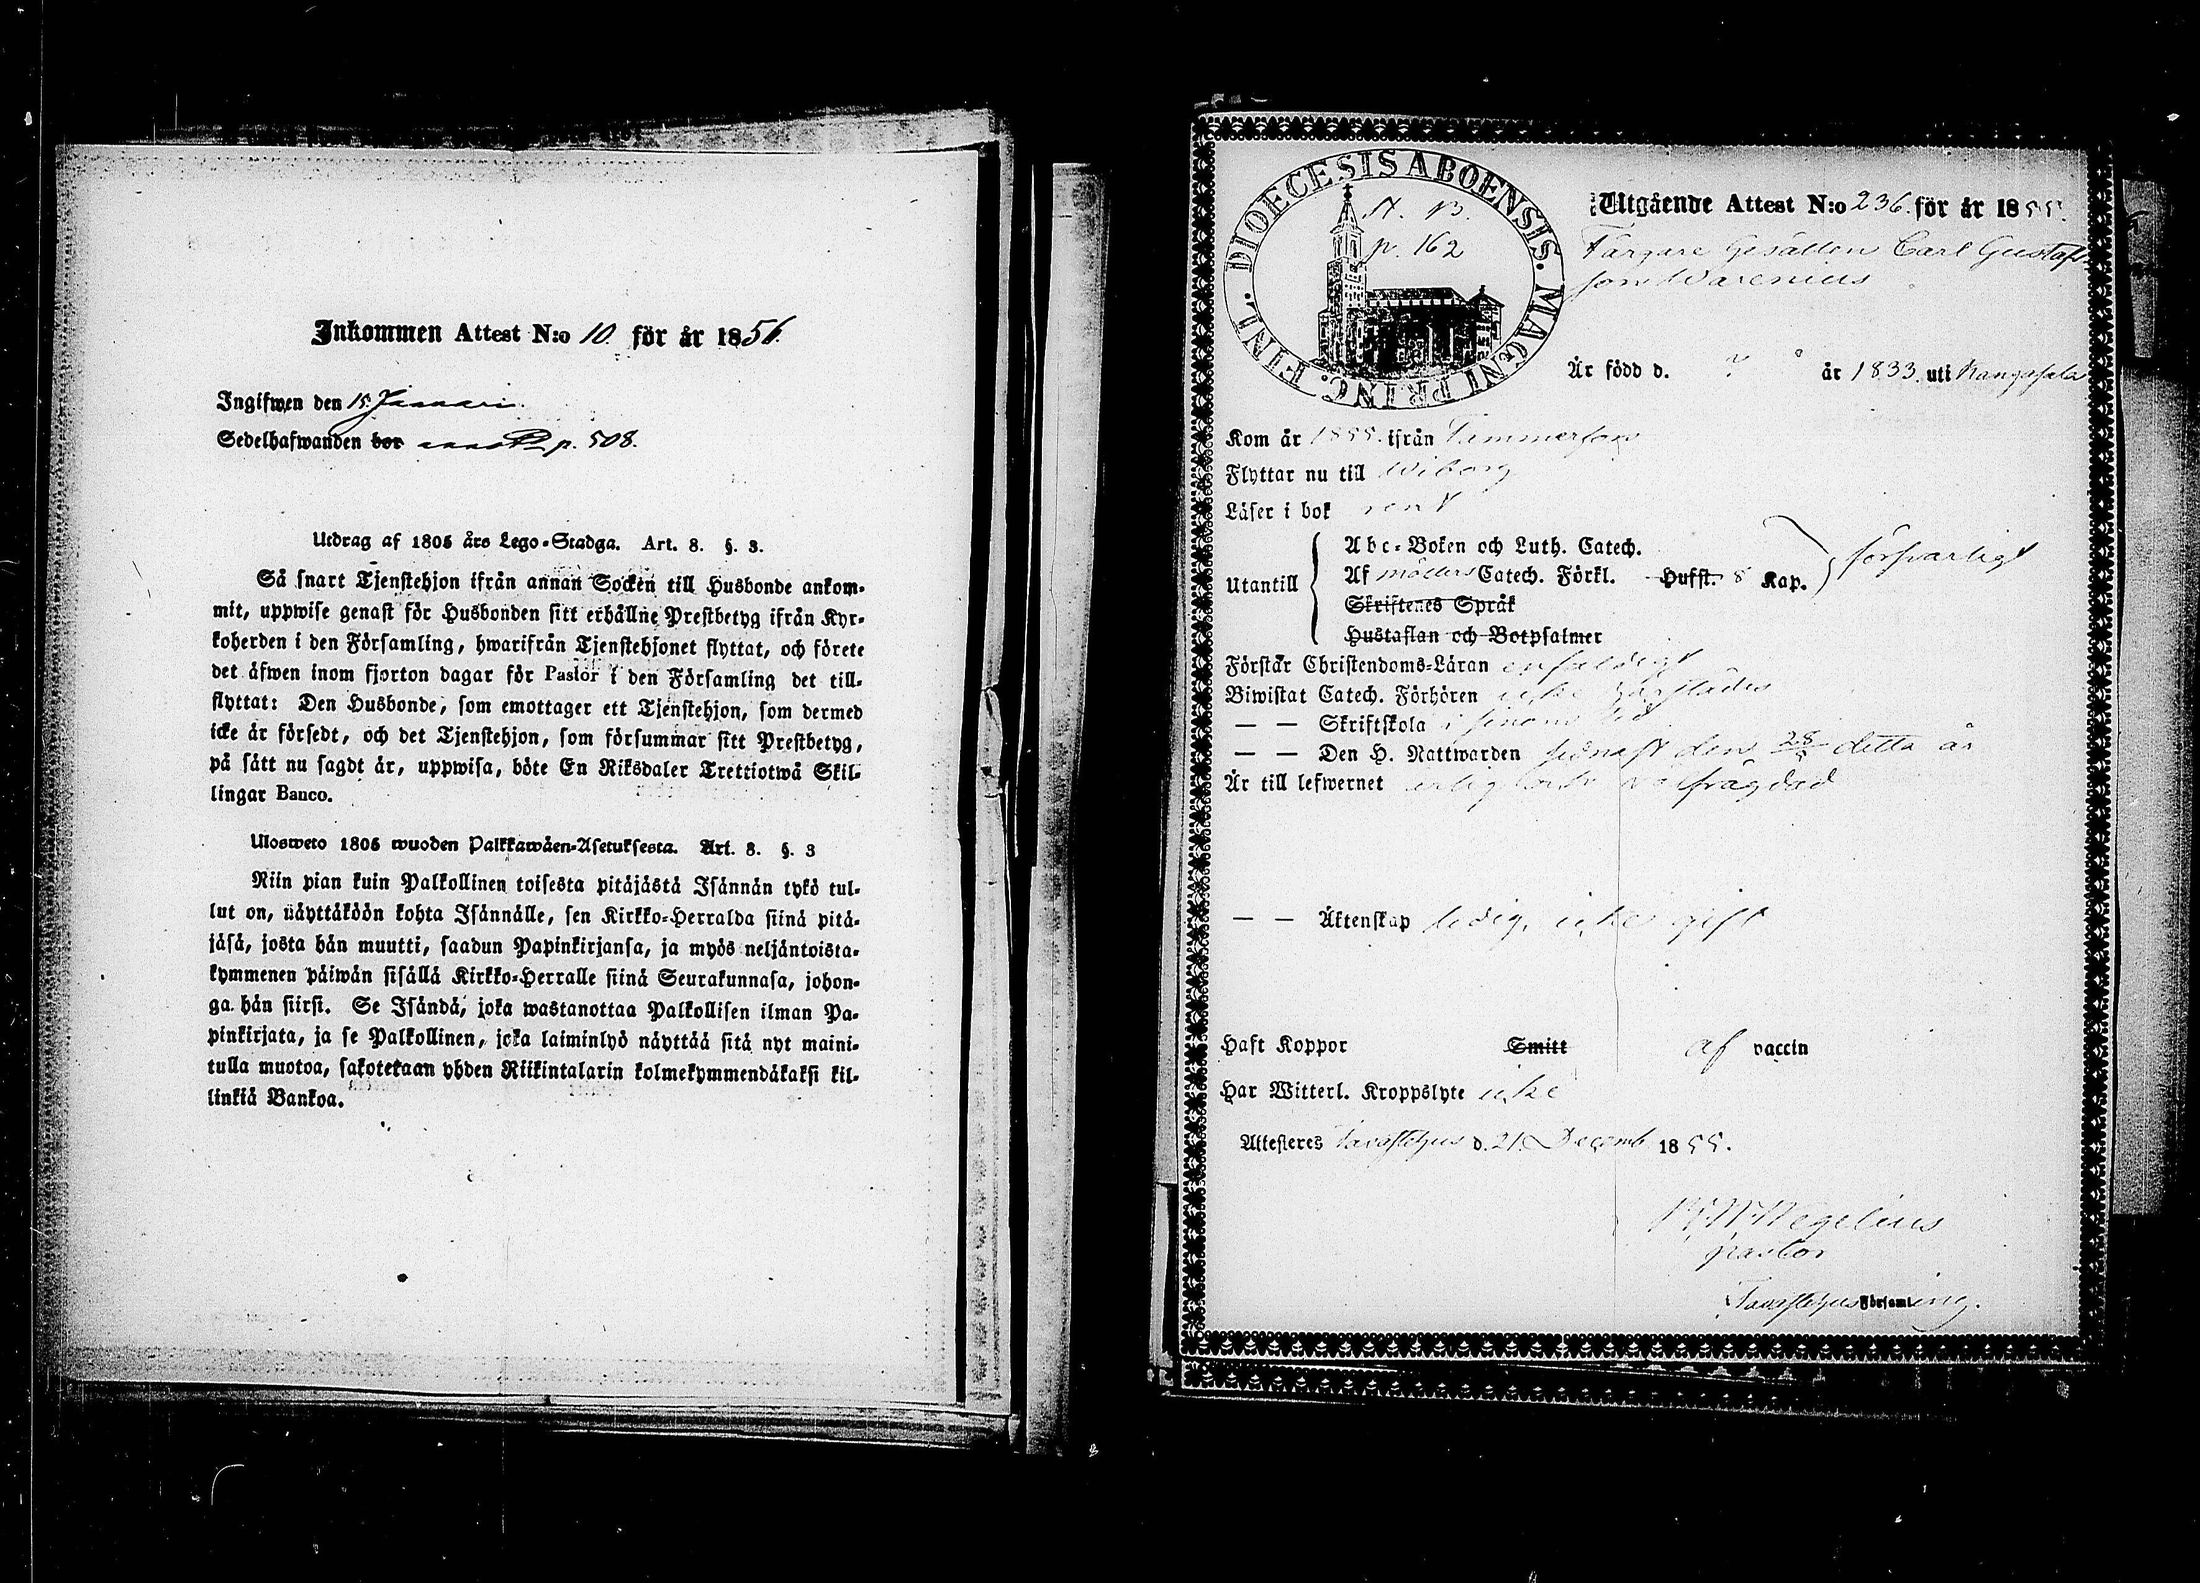 Inkommen Attest N:o 10. för år 1856.
Ingifwen den 15 Januari
Sedelhafwanden bor p. 508.
Utdrag af 1805 års Lego-Stadga. Art. 8. §. 3.
Så snart Tjenstehjon ifrån annan Socken till Husbonde ankom-
mit, uppwise genast för Husbonden sitt erhållne Prestbetyg ifrån Kyr-
koherden i den Församling, hwarifrån Tjenstehjonet flyttat, och förete
det äfwen inom fjorton dagar för Pastor i den Församling det till-
flyttat: Den Husbonde, som emottager ett Tjenstehjon, som dermed
icke är försedt, och det Tjenstehjon, som försummar sitt Prestbetyg,
på sätt nu sagdt är, uppwisa, böte En Riksdaler Trettiotwå Skil-
lingar Banco.
Ulosweto 1805 wuoden Palkkawäen-Asetuksesta. Art. 8. §. 3
Niin pian kuin Palkollinen toisesta pitäjästä Isännän tykö tul-
lut on, näyttäköön kohta Isännälle, sen Kirkko-Herralda siinä pitä-
jäsä, josta hän muutti, saadun Papinkirjansa, ja myös neljäntoista-
kymmenen päiwän sisällä Kirkko-Herralle siinä Seurakunnasa, johon-
ga hän siirsi. Se Isändä, joka wastanottaa Palkollisen ilman Pa-
pinkirjata, ja se Palkollinen, joka laiminlyö näyttää sitä nyt maini-
tulla muotoa, sakotetaan yhden Riikintalarin kolmekymmendäkaksi kil-
linkiä Bankoa.
DIOECESIS ABOENSIS. MAGNI PRINC. FINL.
St. B.
p. 162
Utgående Attest N:o 236. för år 1855.
Färgare Gesällen Carl Gustafs-
son Warenius
Är född d. ? år 1833. uti Kangasala
Kom år 1855. ifrån Tammerfors
Flyttar nu till Wiborg
Läser i bok rent
Utantill
Abc-Boken och Luth. Catech.
Af Möllers Catech. Förkl. Husst. 8 Kap.
försvarligt
Skriftenes Språk
Hustaflan och Botpsalmer
Förstår Christendoms-Läran enfaldigt
Biwistat Catech. Förhören icke härstädes
— — Skriftskola i sinom tid
— — Den H. Nattwarden sednast den detta år
Är till lefwernet ärlig och wälfrägdad
— — Äktenskap ledig, icke gift
Haft Koppor Smitt af vaccin
Har Witterl. Kroppslyte icke
Attesteres Tavastehus d. 21. Decemb. 1855.
Wegelius
pastor
Tavastehus Församling.